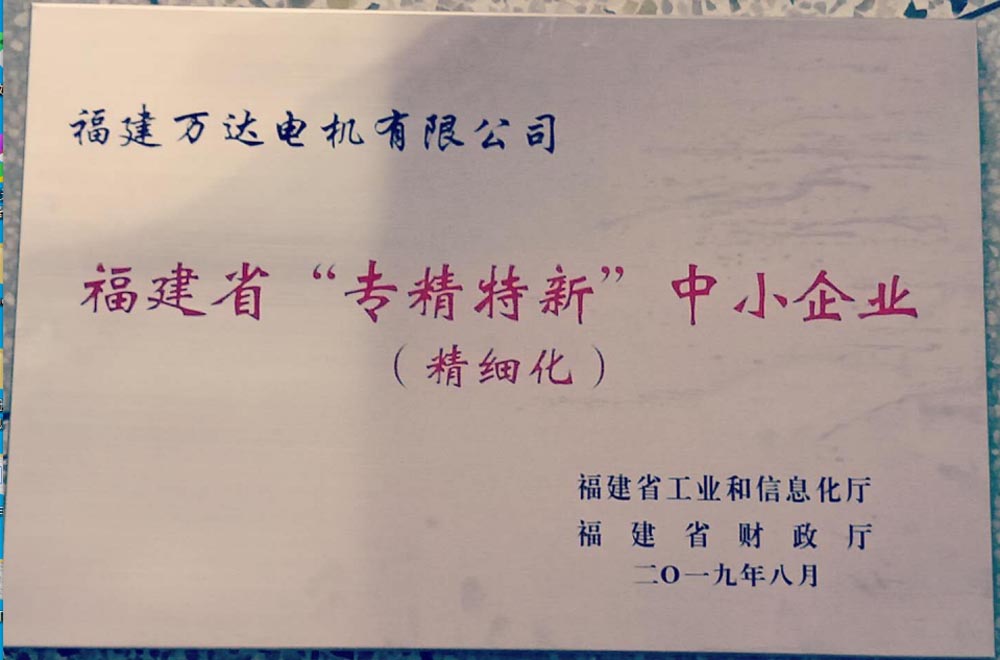 福建万达电机有限公司
福建省“专精特新”中小企业
（精细化）
福建省工业和信息化厅
福建省财政厅
二O一九年八月